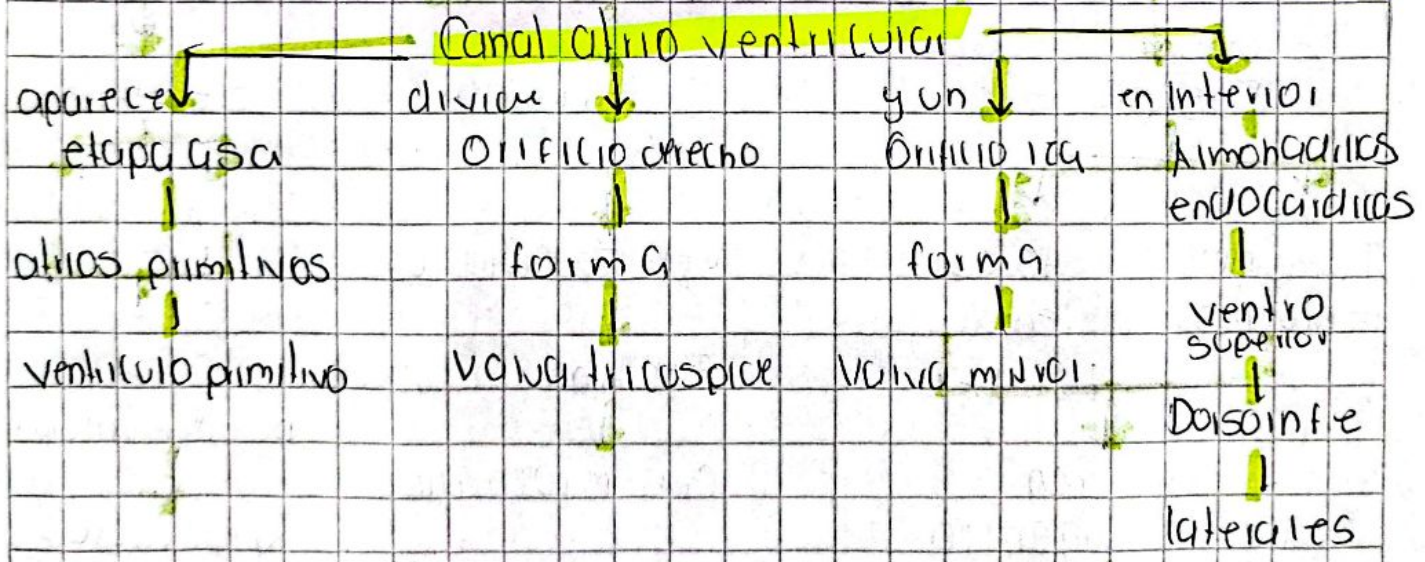 Canal atrio ventricular
aparece
etapa asa
atrios primitivos
ventriculo primitivo
divide
Orificio derecho
forma
Valva tricuspide
y un
Orificio izq
forma
Valva mitral
en interior
Almohadillas
endocardicas
ventro
superior
Dorsoinfe
laterales